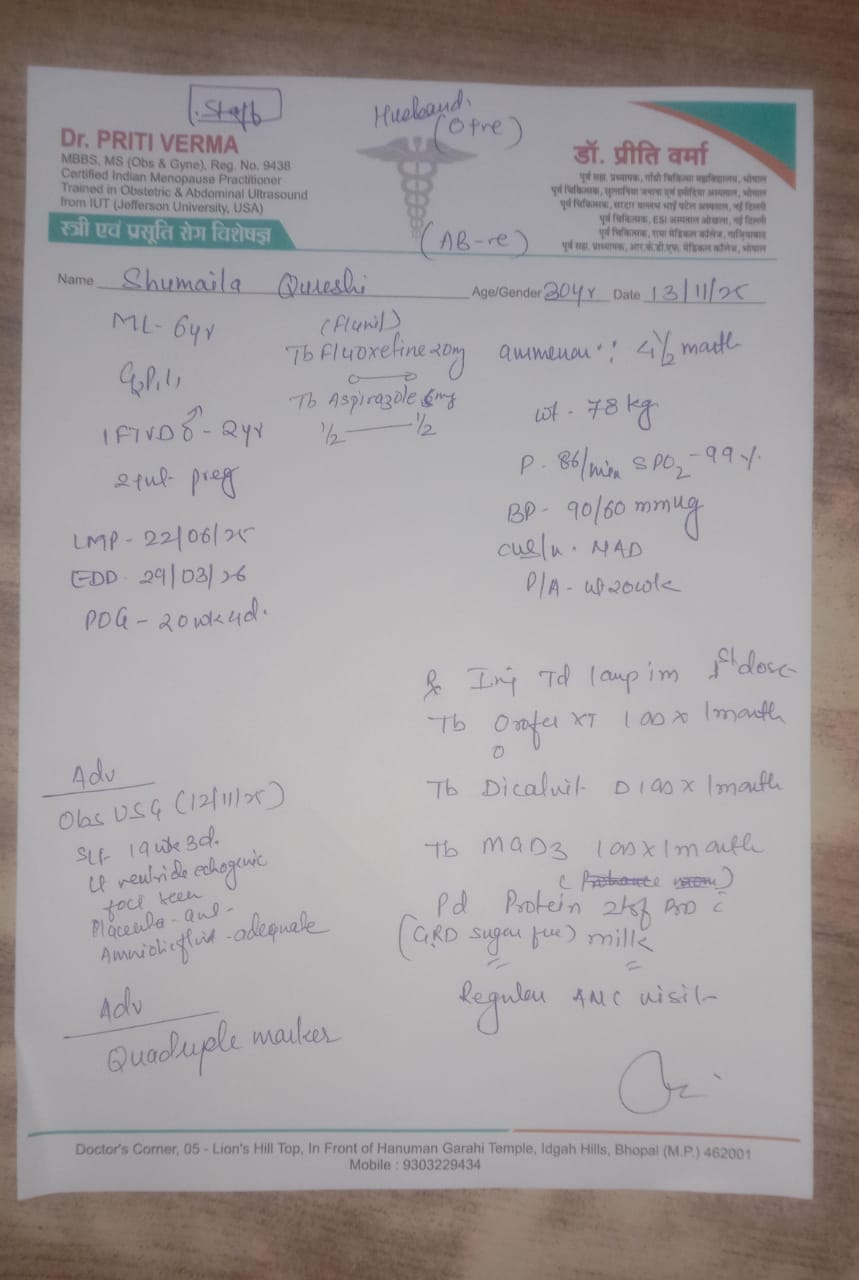 Staff
Husband.
(O+ve)
Dr. PRITI VERMA
MBBS, MS (Obs & Gyne), Reg. No. 9438
Certified Indian Menopause Practitioner
Trained in Obstetric & Abdominal Ultrasound
from IUT (Jefferson University, USA)
स्त्री एवं प्रसूति रोग विशेषज्ञ
डॉ. प्रीति वर्मा
पूर्व सह. प्राध्यापक, गाँधी चिकित्सा महाविद्यालय, भोपाल
पूर्व चिकित्सक, सुल्तानिया जनाना एवं हमीदिया अस्पताल, भोपाल
पूर्व चिकित्सक, सरदार वल्लभ भाई पटेल अस्पताल, नई दिल्ली
पूर्व चिकित्सक, ESI अस्पताल ओखला, नई दिल्ली
पूर्व चिकित्सक, रामा मेडिकल कॉलेज, गाजियाबाद
पूर्व सह. प्राध्यापक, आर.के.डी.एफ. मेडिकल कॉलेज, भोपाल
(AB-ve)
Name Shumaila Qureshi Age/Gender 30yr Date 13/11/25
ML- 6yr
G2P1L1
1 FTVD ♂ - 2yr
preg
LMP - 22/06/25
EDD - 29/03/26
POG - 20wk4d.
(Flunil)
Tb Fluoxetine 20mg
Tb Aspirazole 5mg
1/2 1/2
4 1/2 month
wt - 78 kg
P - 86/min SPO2 - 99%
BP - 90/60 mmHg
NAD
P/A - ut 20wk
Rx Inj Td 1amp im 1st dose
Tb Orofer XT 1 OD x 1month
Tb Dicalvit D 1 OD x 1month
Tb MGD3 1 OD x 1month
Pd Protein 2tsf BD c̄
(GRD sugar free) milk
Regular ANC visit
Adv
Obs USG (12/11/25)
SLF 19wk 3d.
Lf ventricle echogenic
foci seen
Placenta - ant -
Amniotic fluid - adequate
Adv
Quadruple marker
Doctor's Corner, 05 - Lion's Hill Top, In Front of Hanuman Garahi Temple, Idgah Hills, Bhopal (M.P.) 462001
Mobile : 9303229434